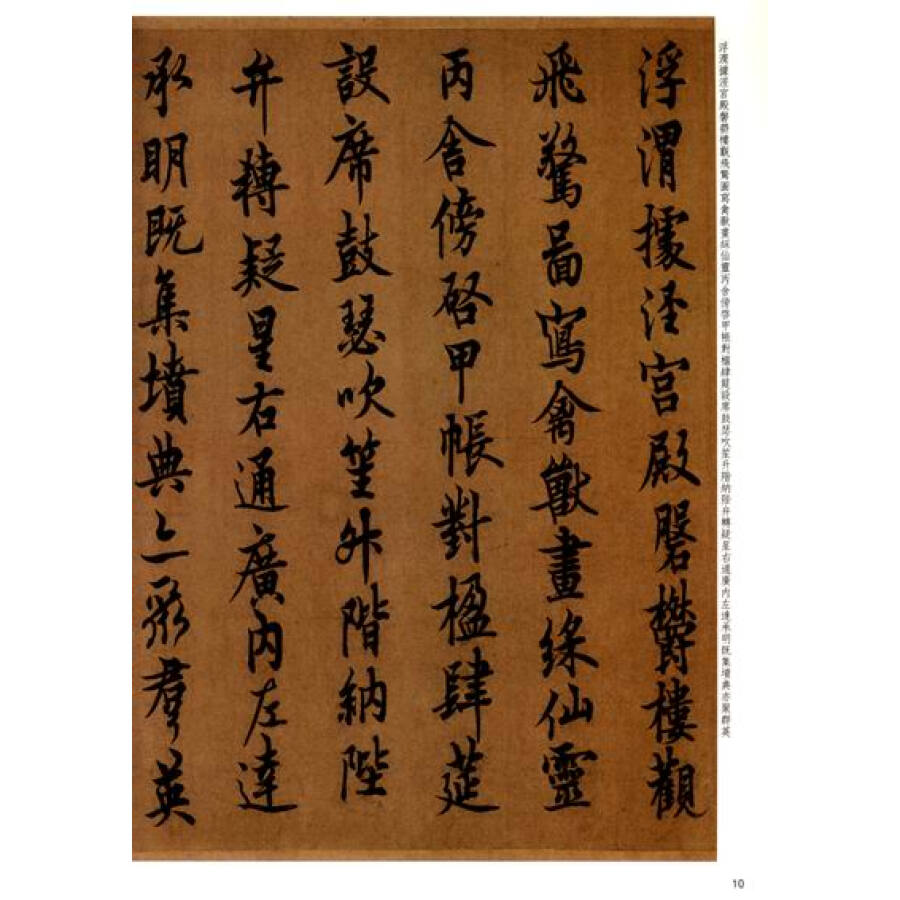 浮渭據涇宮殿磐欝樓觀飛驚圖寫禽獸畫綵仙靈丙舍傍啓甲帳對楹肆筵設席鼓瑟吹笙升階納陛弁轉疑星右通廣內左達承明既集墳典亦聚群英
浮渭據涇宮殿磐欝樓觀
飛驚啚寫禽獸畫綵仙靈
丙舍傍啓甲帳對楹肆莚
設席鼓瑟吹笙升階納陛
弁轉疑星右通廣內左達
承明既集墳典亦聚羣英
10